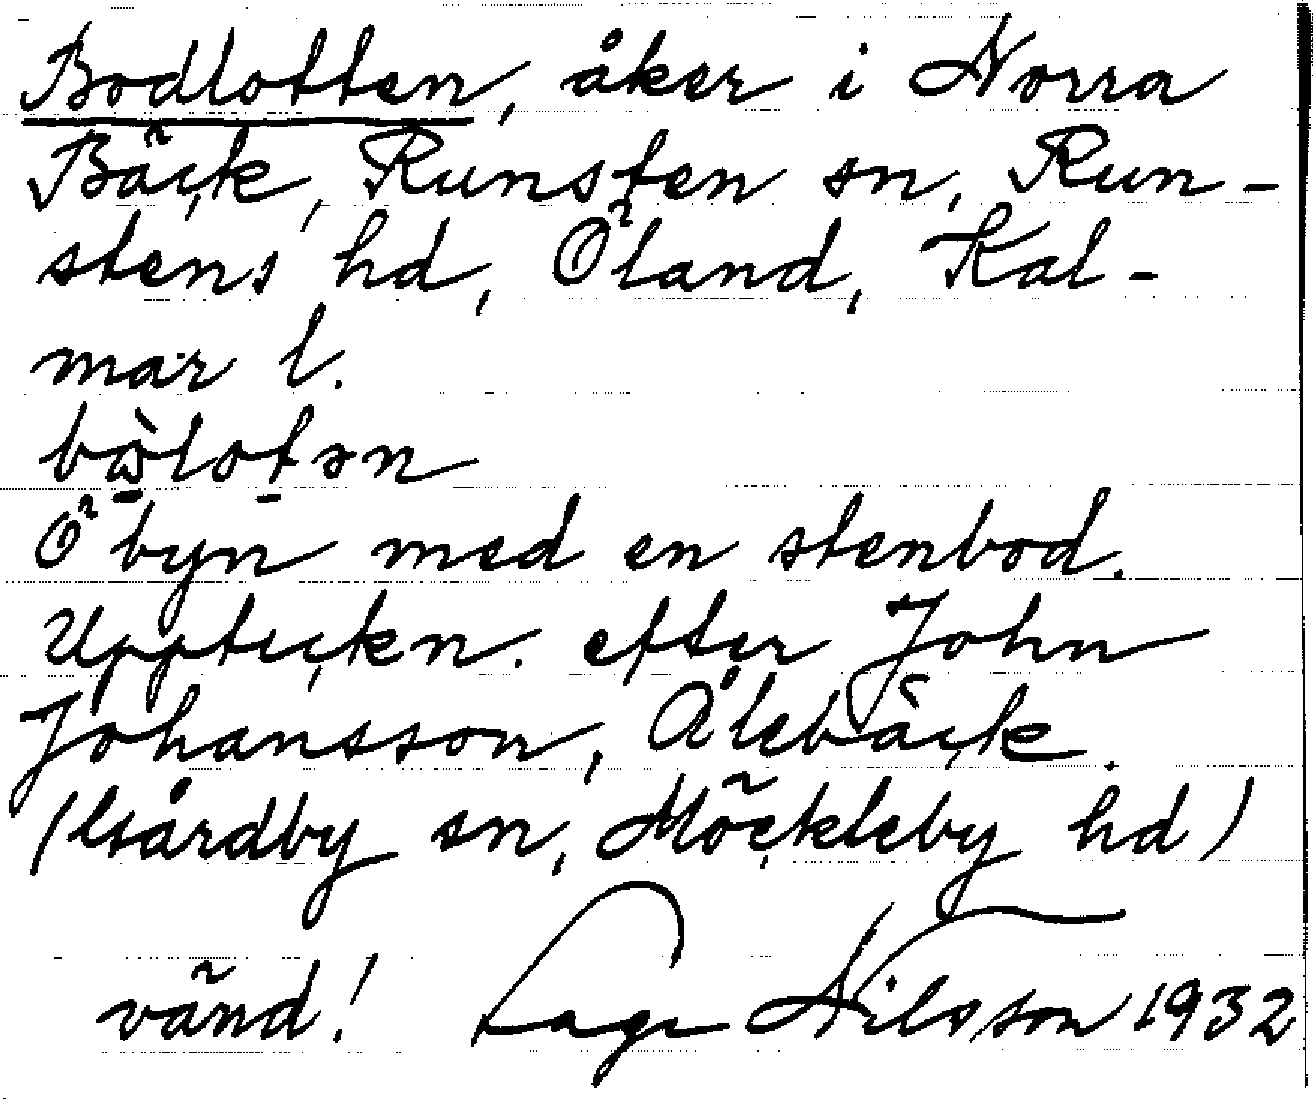 Bodlotten, åker i Norra
Bäck, Runsten sn, Run-
stens hd, Öland, Kal-
mar l.
Ö byn med en stenbod.
Uppteckn. efter John
Johansson, Ålebäck.
(Gårdby sn, Möckleby hd)
vänd! Lage Nilsson 1932